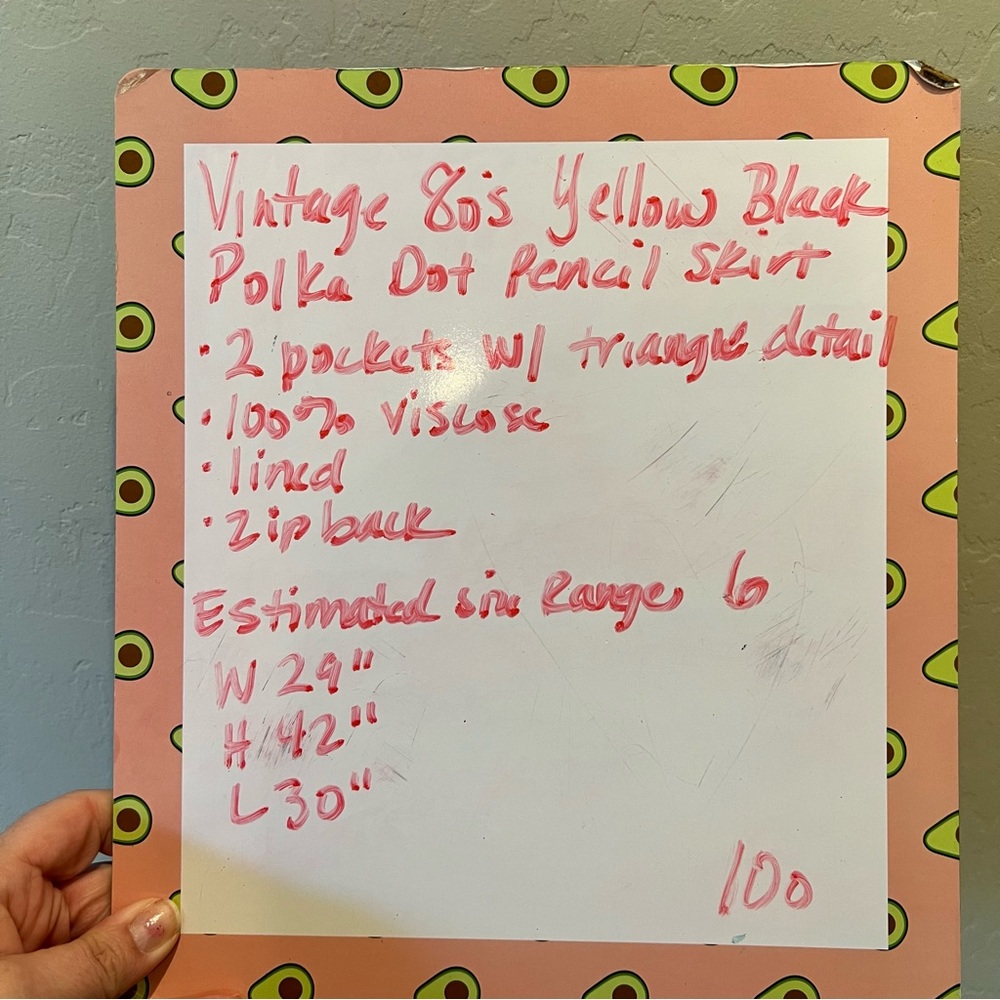 Vintage 80's Yellow Black
Polka Dot Pencil Skirt
• 2 pockets w/ triangle detail
• 100% viscose
• lined
• Zip back
Estimated size Range 6
W 29"
H 42"
L 30"
100